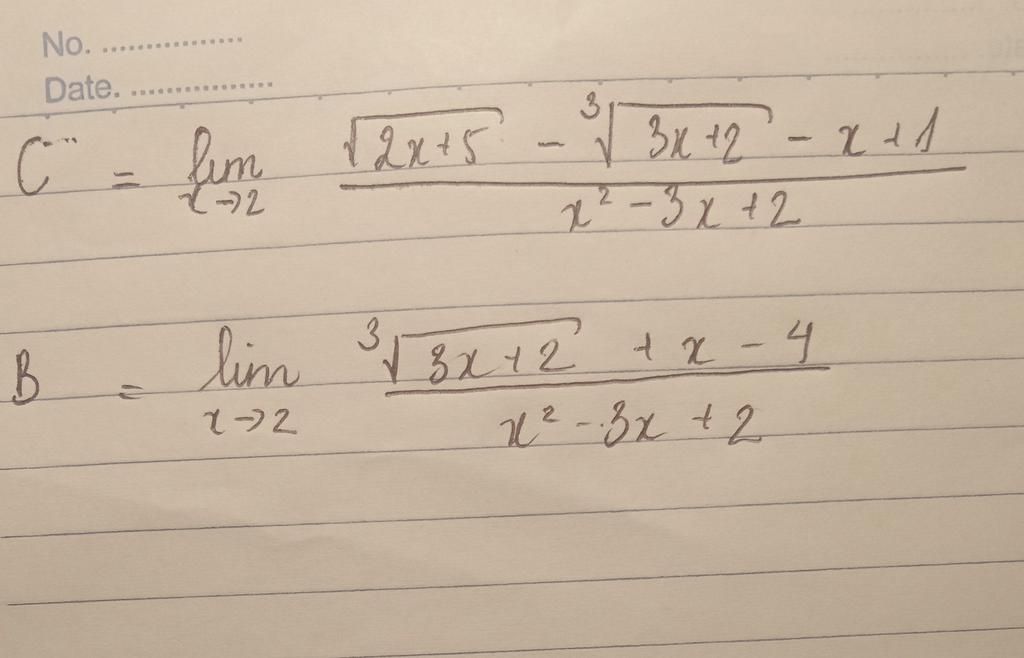 No. ................
Date. ................
C = lim x→2 (√(2x+5) - ³√(3x+2) - x + 1) / (x² - 3x + 2)
B = lim x→2 (³√(3x+2) + x - 4) / (x² - 3x + 2)